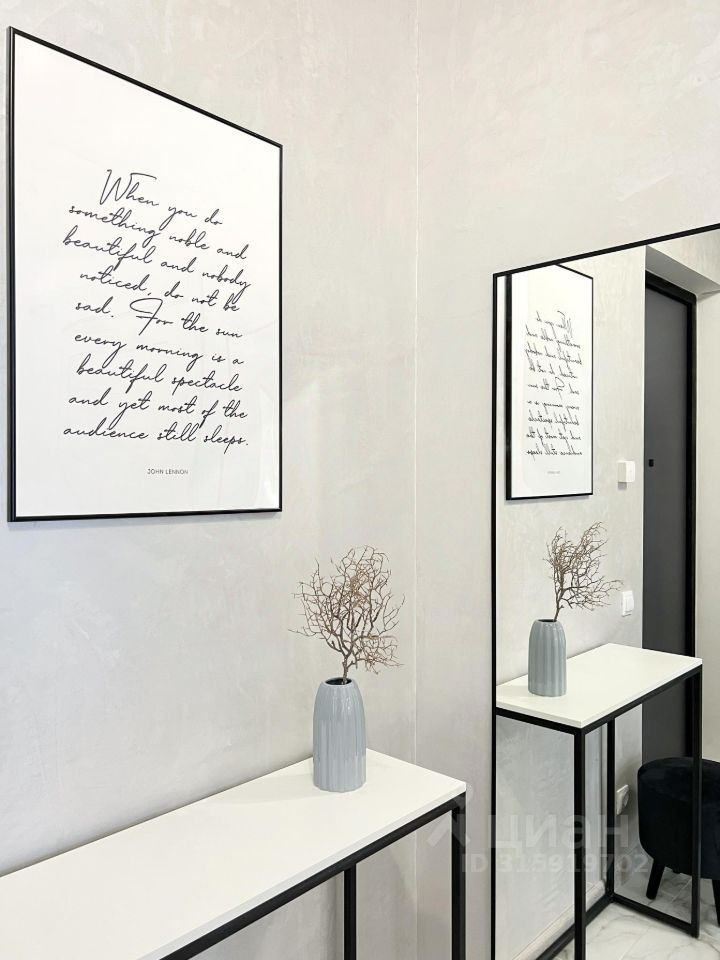 When you do
something noble and
beautiful and nobody
noticed, do not be
sad. For the sun
every morning is a
beautiful spectacle
and yet most of the
audience still sleeps.
JOHN LENNON
циан
ID 315919702